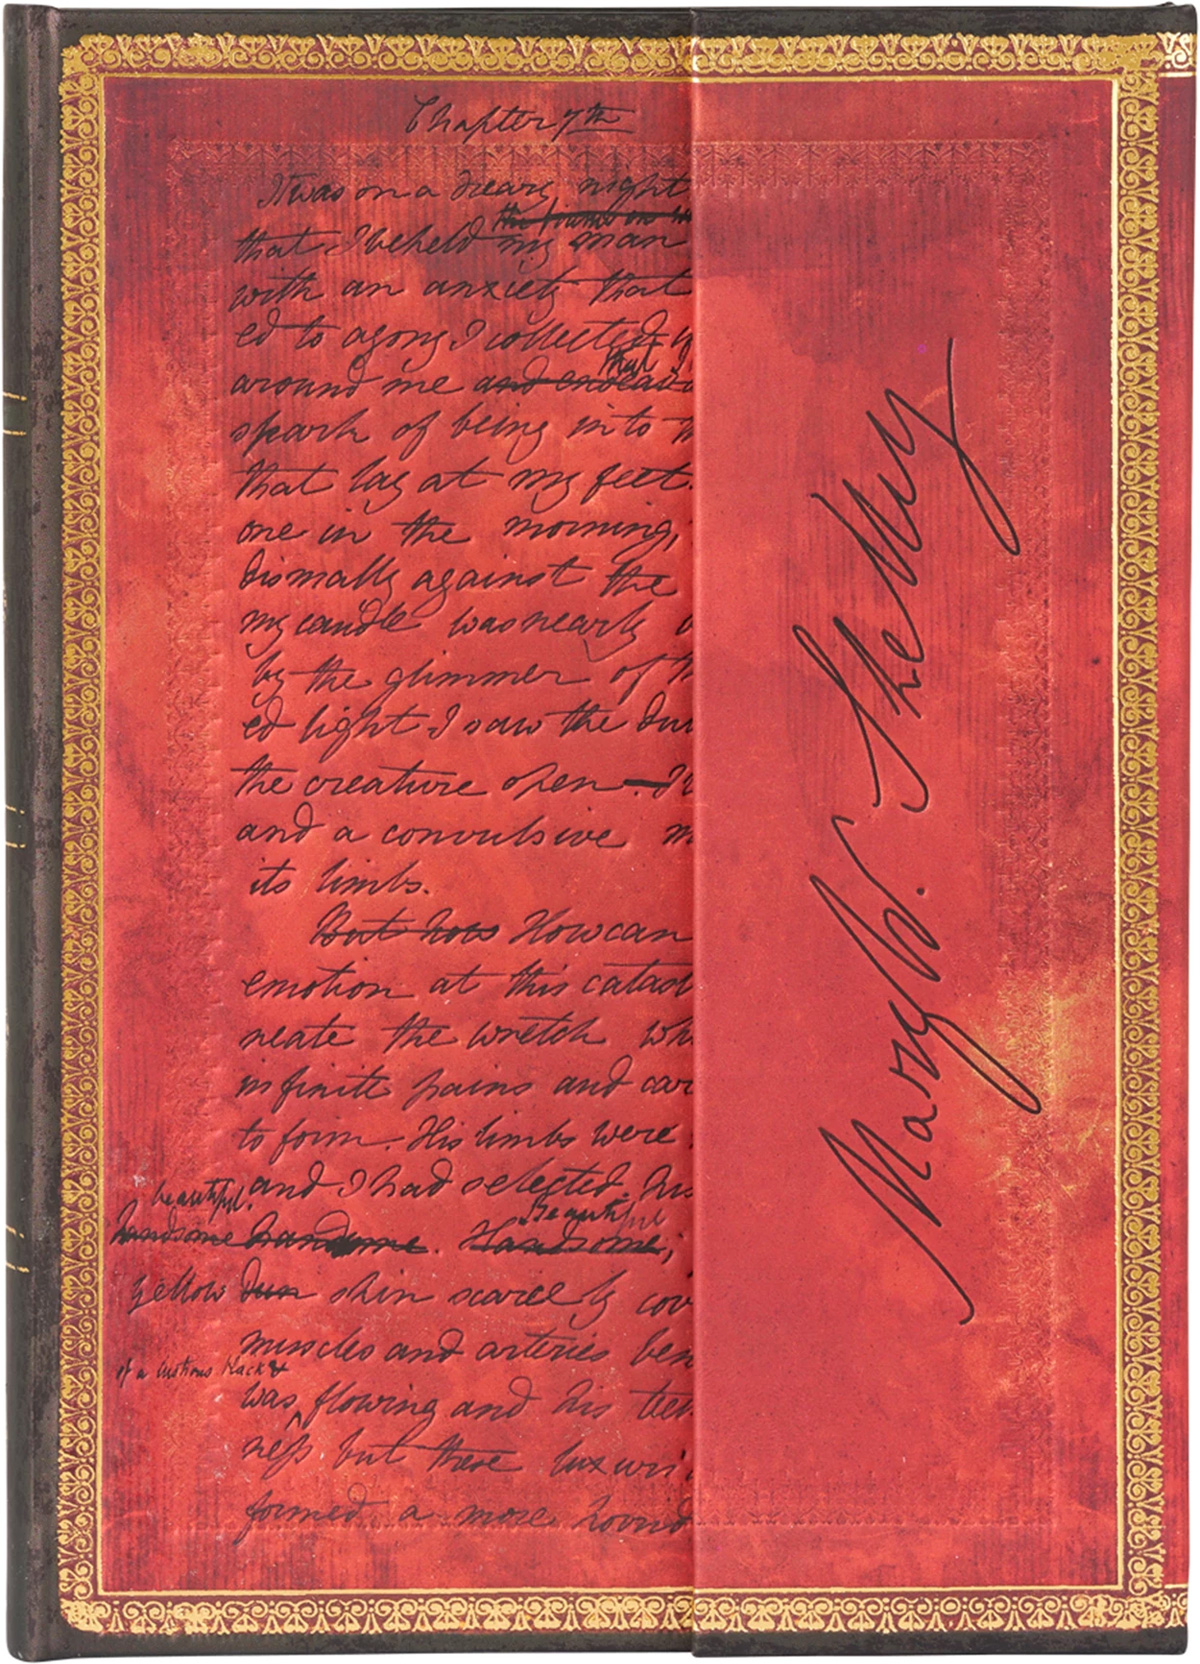 Chapter 7th
It was on a dreary night
that I beheld my man
with an anxiety that
ed to agony I collected
that
around me and endeavo
spark of being into
that lay at my feet.
one in the morning,
dismally against the
my candle was nearly
by the glimmer of
ed light I saw the du
the creature open. I
and a convulsive m
its limbs.
But how How can
emotion at this catast
neate the wretch wh
infinite pains and car
to form. His limbs were
and I had selected his
beautiful. Beautiful
handsome handsome. Handsome;
yellow dun skin scarcely cov
muscles and arteries ben
of a lustrous black &
was flowing and his teet
ness but these luxuri
formed a more horrid
Mary W. Shelley